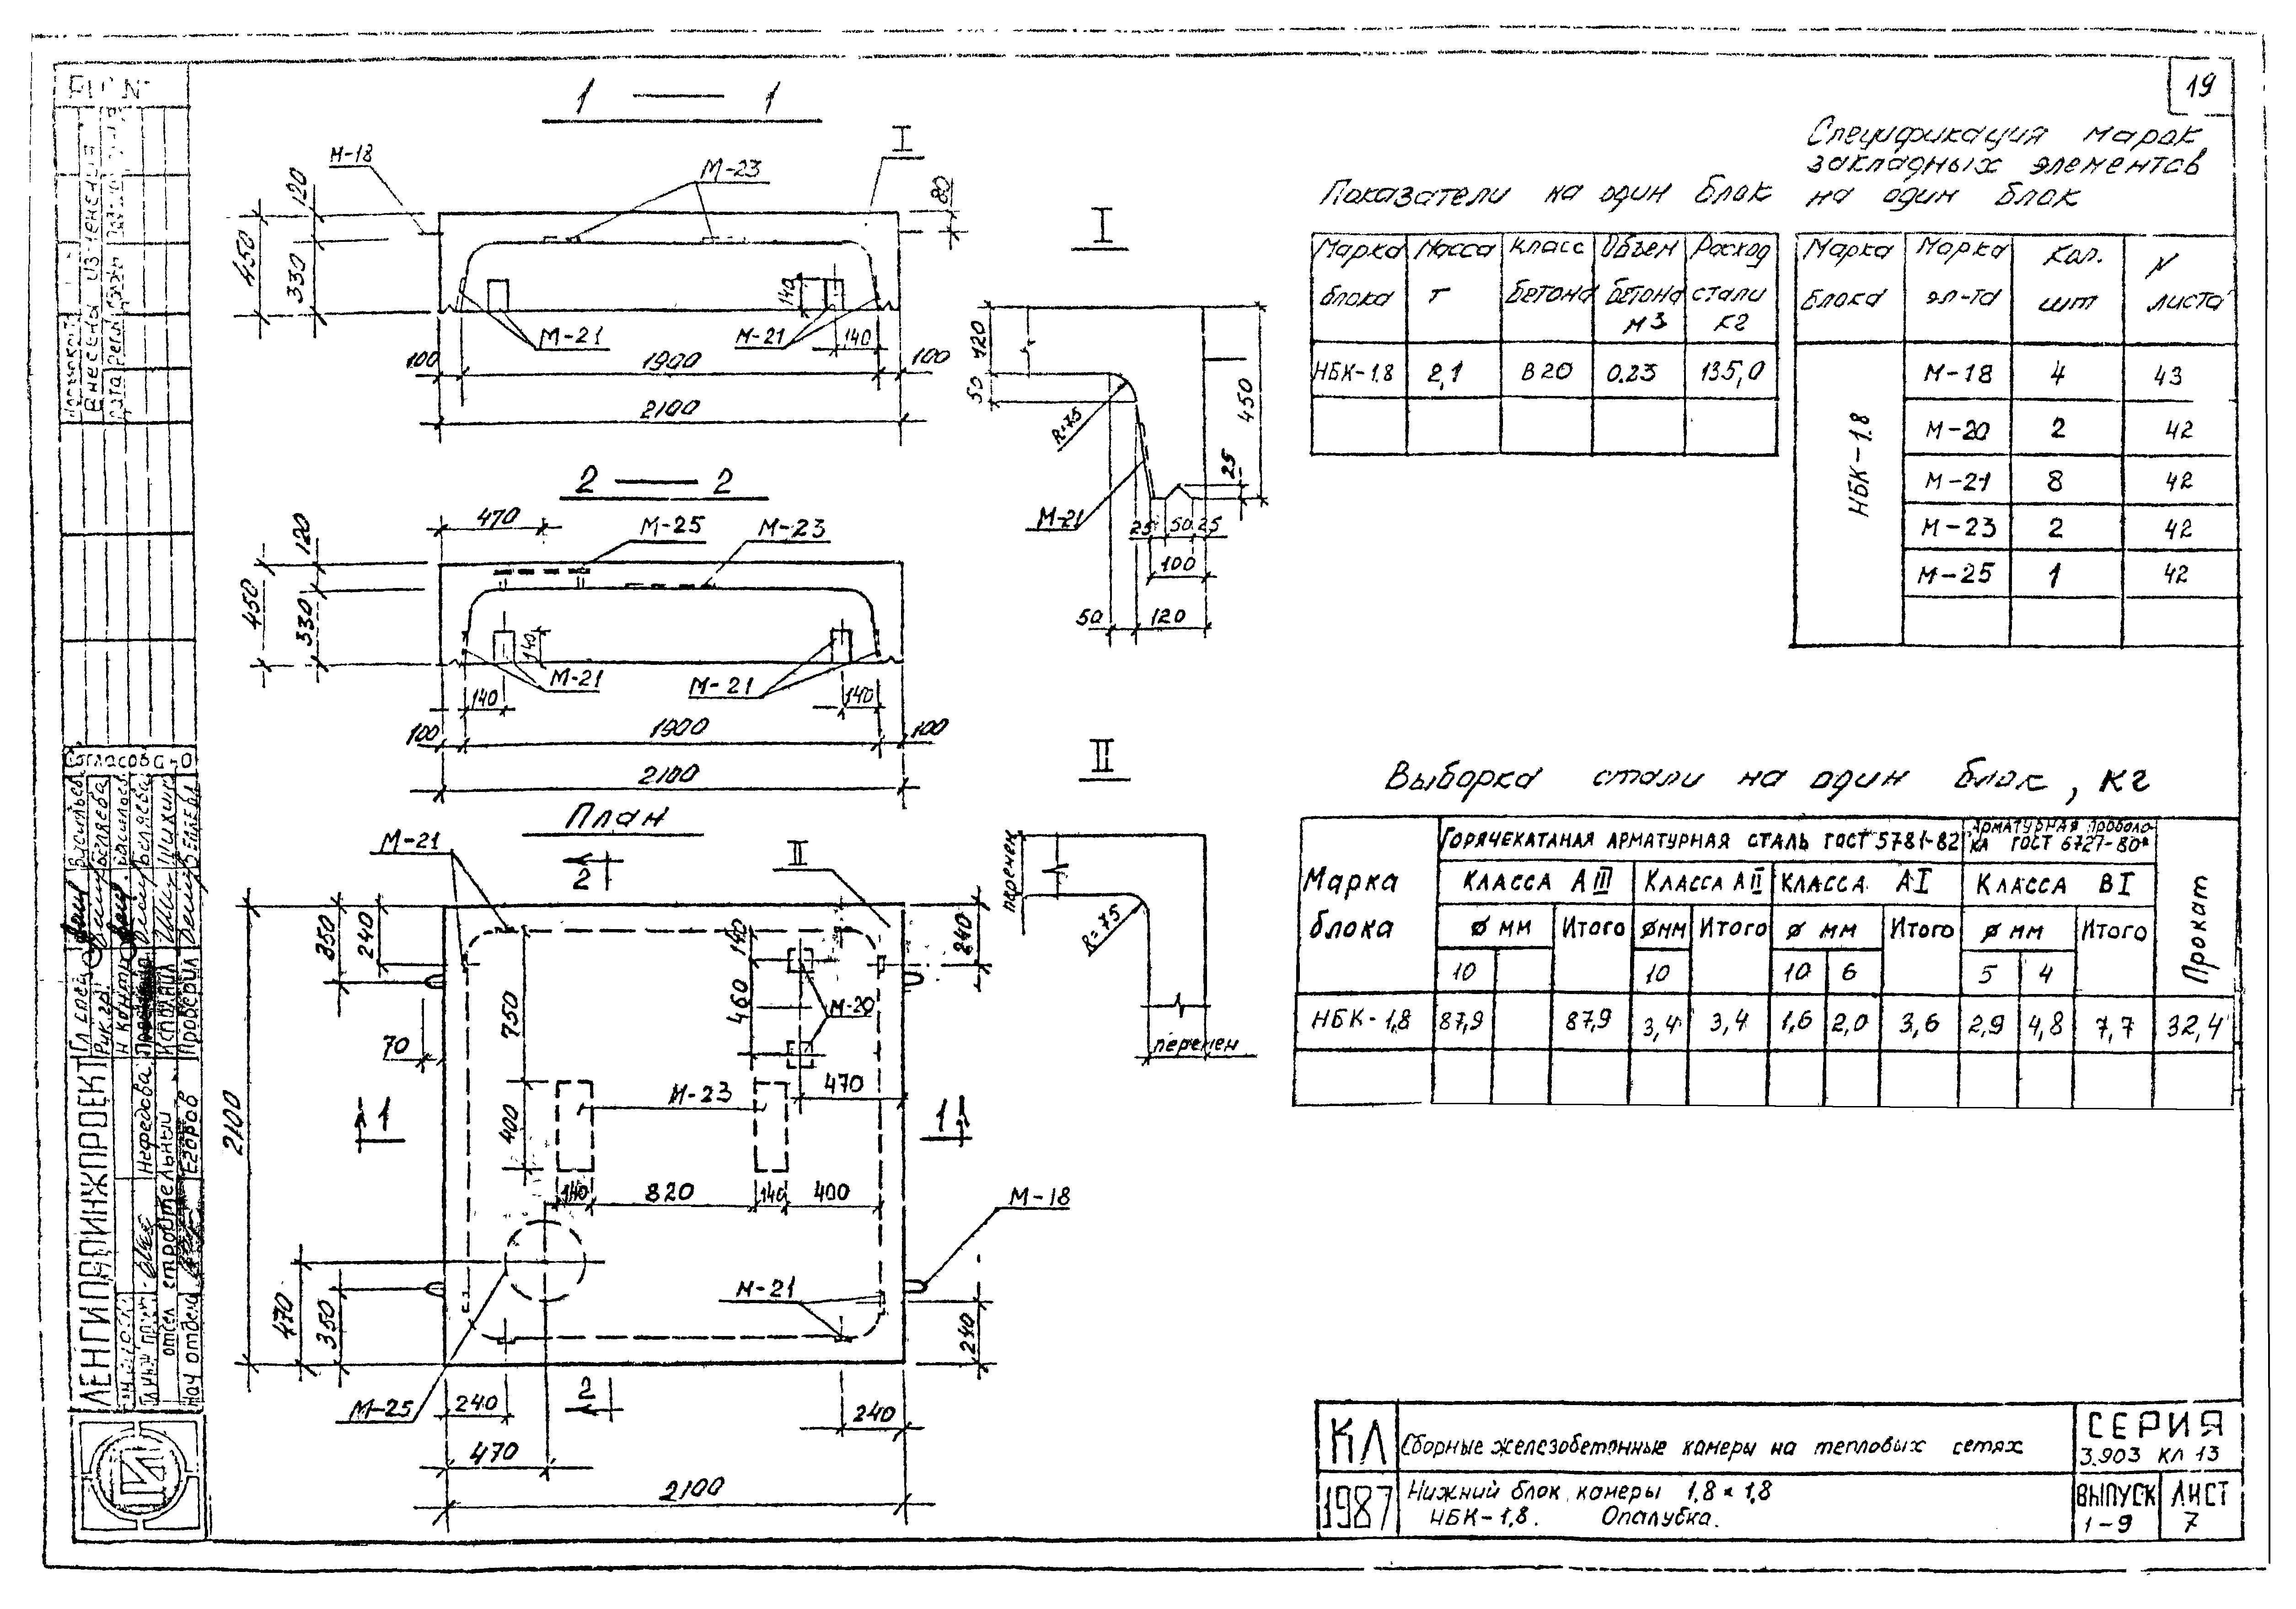 19
1 — 1
М-18
М-23
I
120
450
330
80
140
М-21
М-21
140
100
1900
100
2100
2 — 2
470
М-25
М-23
120
450
330
140
М-21
М-21
140
140
100
1900
100
2100
План
М-21
2
II
350
240
140
240
750
460
М-20
70
470
М-23
400
2100
1
1
140
820
140
400
М-18
470
350
М-21
240
М-25
240
2
240
470
2100
I
120
50
R=75
450
25
М-21
25 50 25
100
50
120
II
перемен
R=75
перемен
Показатели на один блок
Марка блока
Масса т
Класс бетона
Объем бетона м3
Расход стали кг
НБК-1.8 2,1 В20 0.23 135,0
Спецификация марок
закладных элементов
на один блок
Марка блока
Марка эл-та
Кол. шт
N листа
НБК-1.8
М-18 4 43
М-20 2 42
М-21 8 42
М-23 2 42
М-25 1 42
Выборка стали на один блок, кг
Марка блока
Горячекатаная арматурная сталь ГОСТ 5781-82
Арматурная проволока ГОСТ 6727-80*
Прокат
Класса АIII
Класса АII
Класса АI
Класса ВI
Ø мм Итого Ø мм Итого Ø мм Итого Ø мм Итого
10 10 10 6 5 4
НБК-1,8 87,9 87,9 3,4 3,4 1,6 2,0 3,6 2,9 4,8 7,7 32,4
КЛ
1987
Сборные железобетонные камеры на тепловых сетях
Нижний блок камеры 1,8 × 1,8
НБК-1,8. Опалубка.
СЕРИЯ
3.903 КЛ 13
ВЫПУСК
1-9
ЛИСТ
7
Внесены изменения
Согласовано
Рук. гр.
Н контр
Исполнил
Проверил
ЛЕНГИПРОИНЖПРОЕКТ
Нефедова
отдел строительный
Нач отдела
Егоров